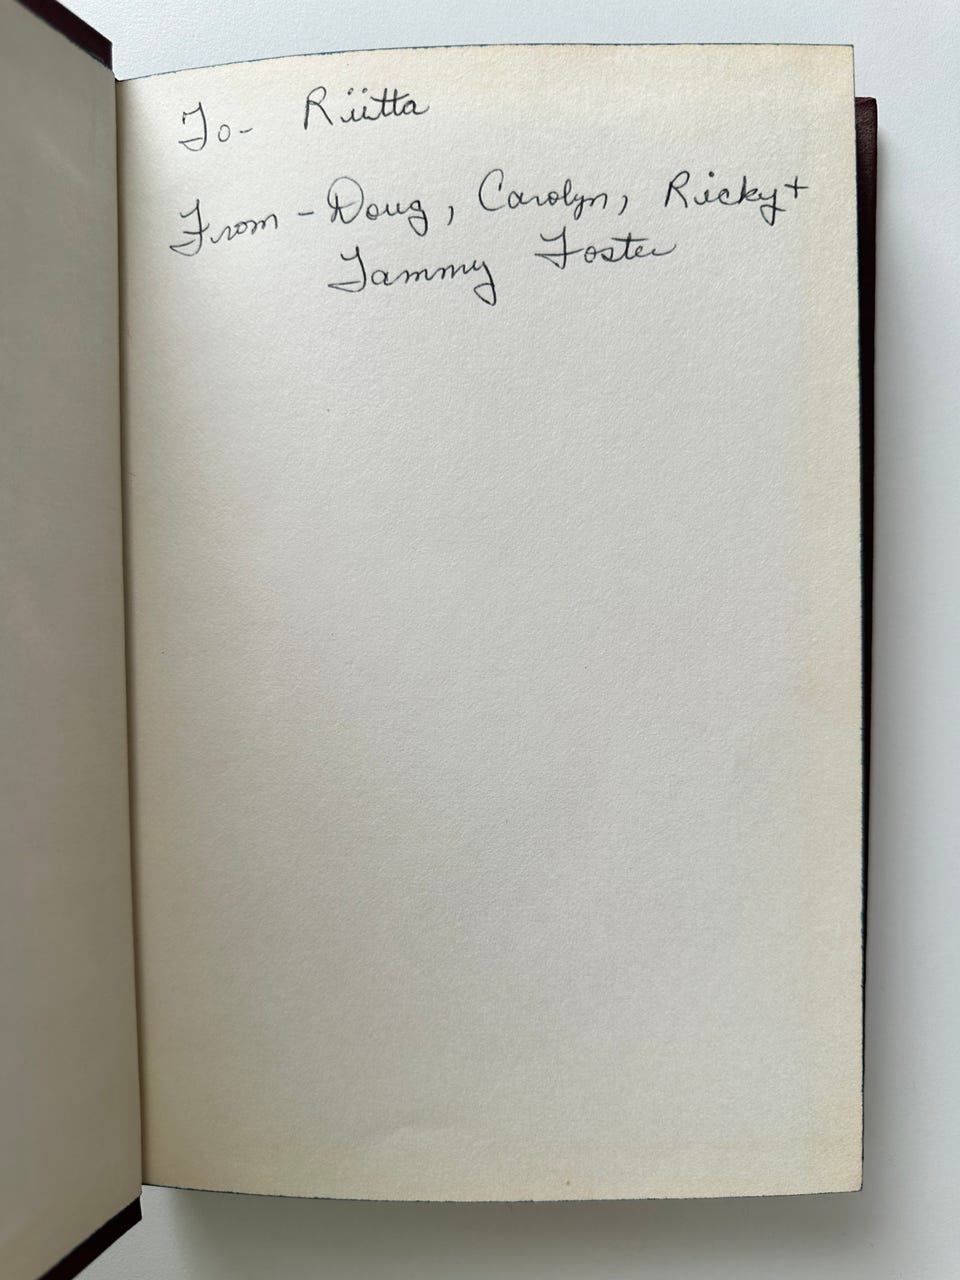 To- Riitta
From - Doug, Carolyn, Ricky +
Tammy Foster